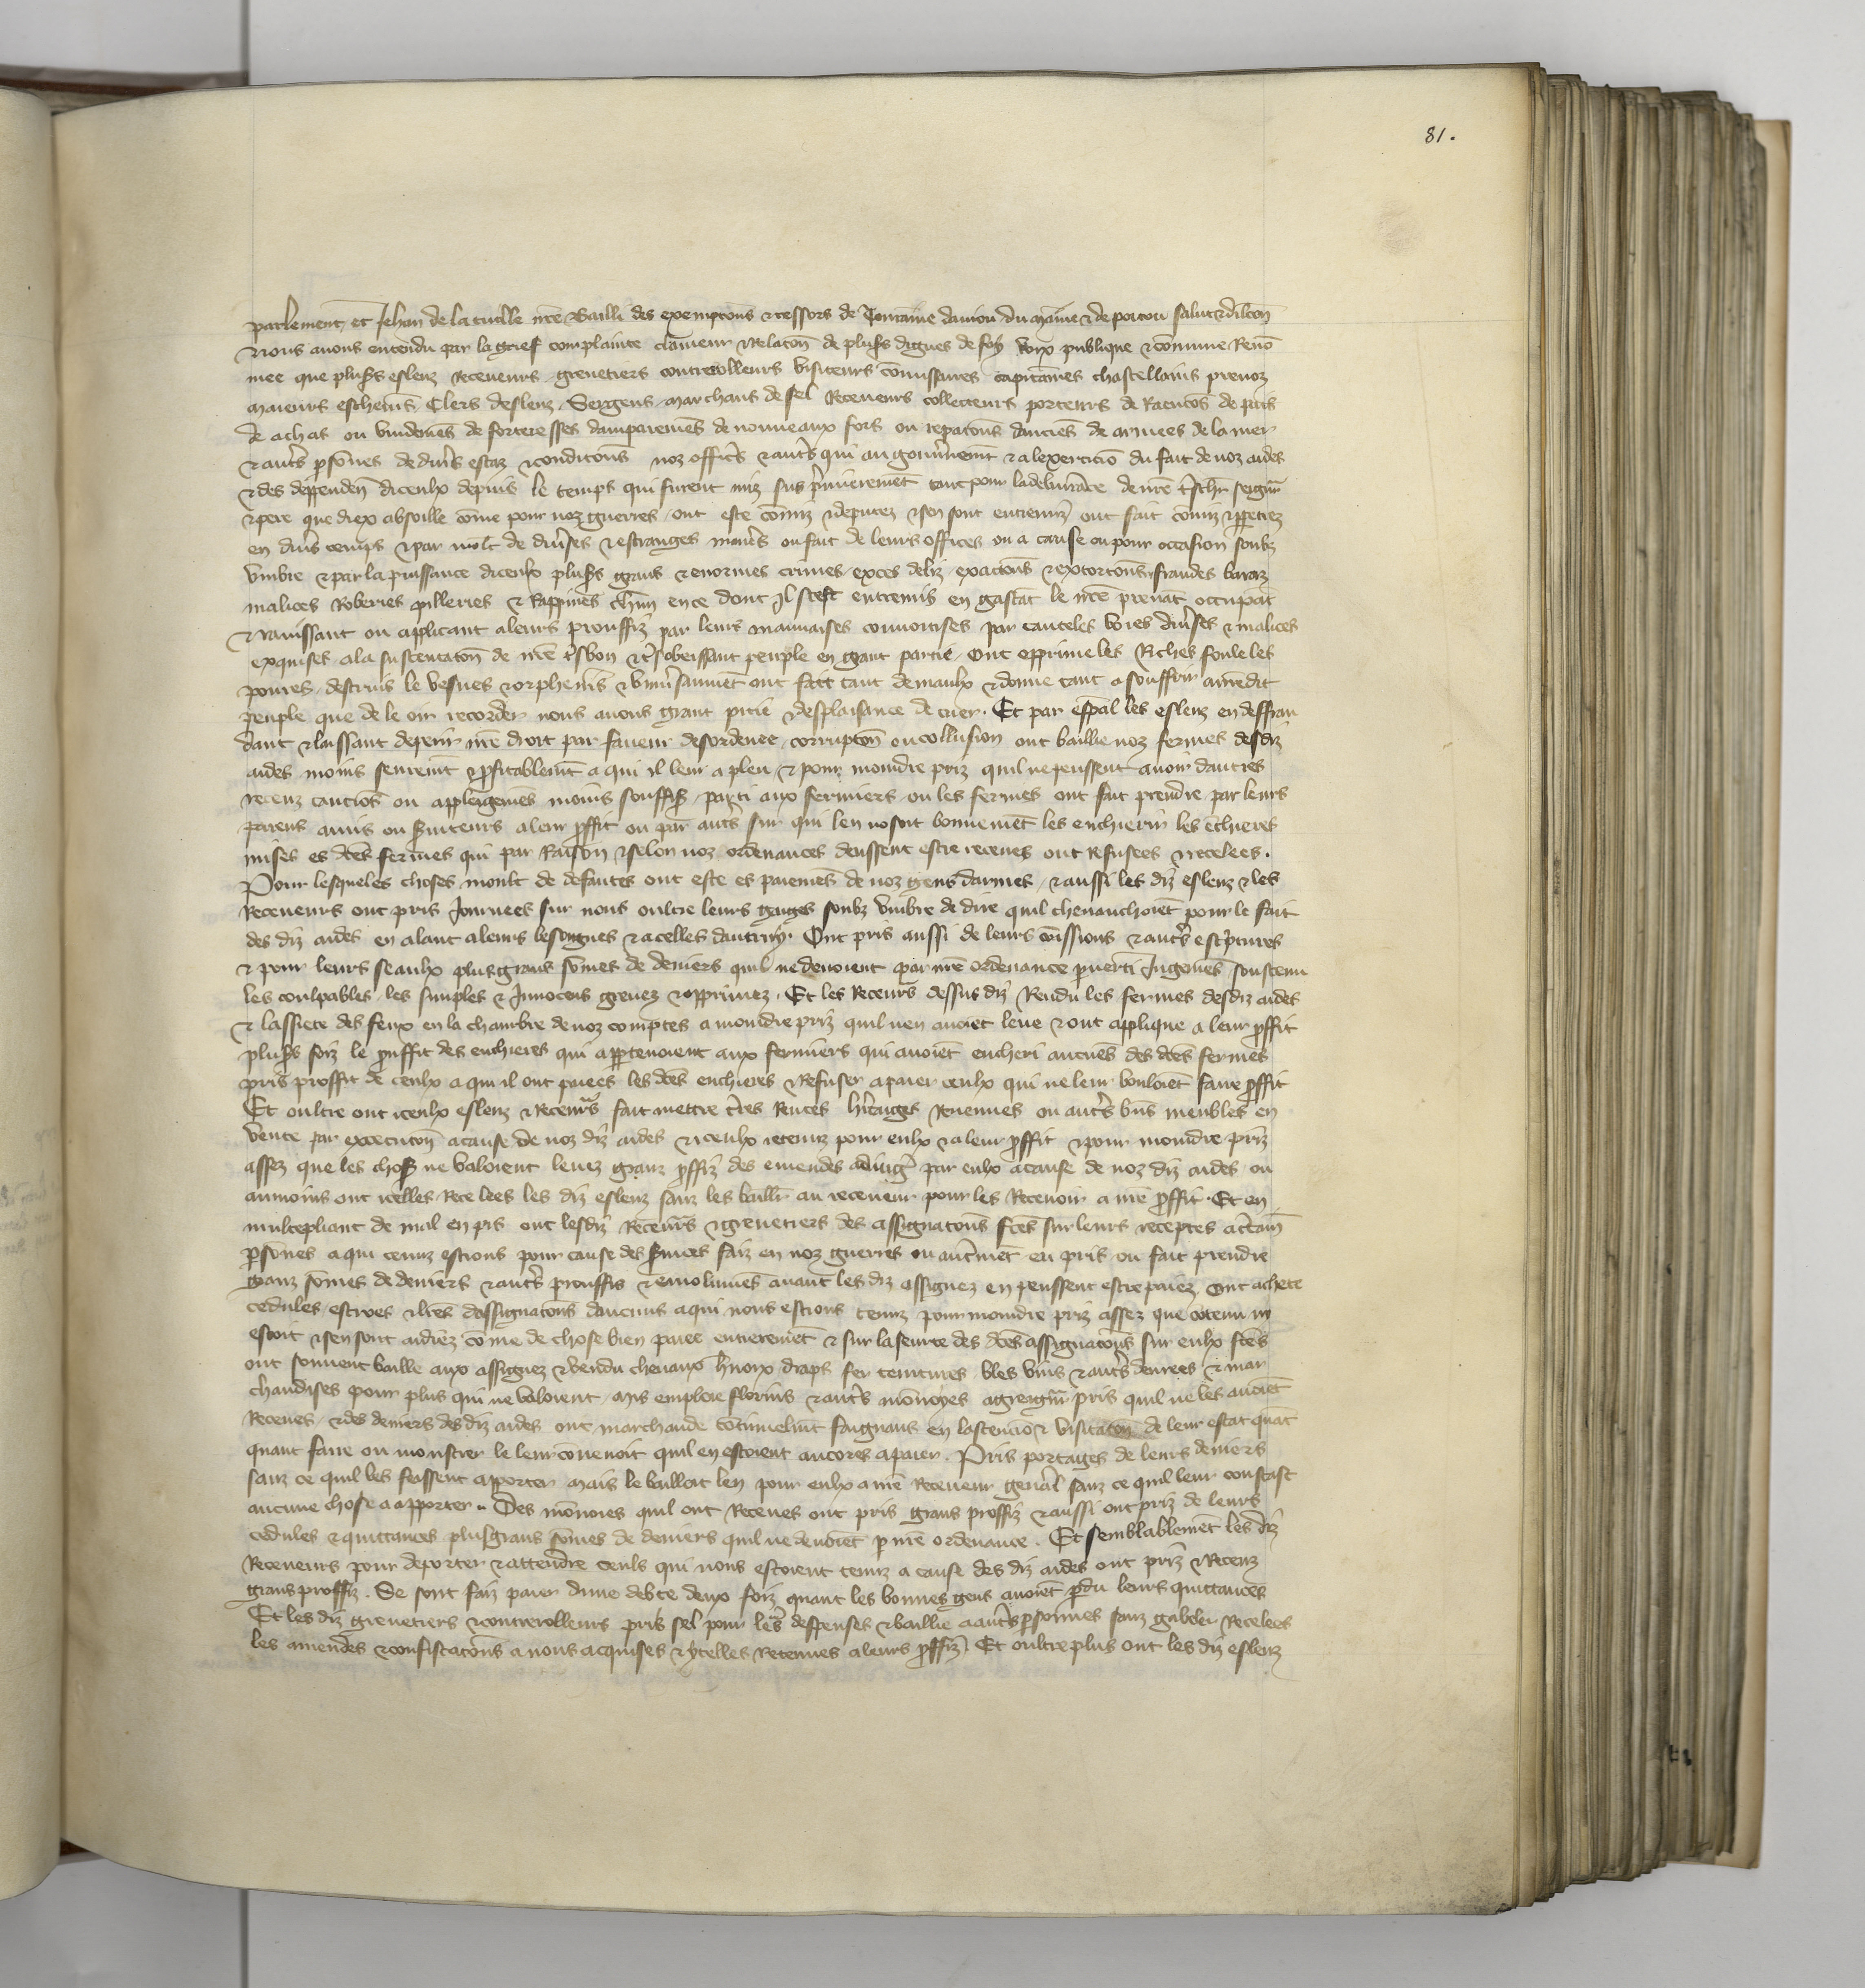 81.
parlement et Jehan de la tuille nre Bailli des exempcons & ressors de Touraine daniou du maine & de poitou salut & dilcon
& nous auons entendu par la grief complainte clameur & Relacon de plusrs dignes de foy voix publique & commune Renō
mee que plusrs esleuz Receueurs grenetiers contrerolleurs visiteurs comissaires capitaines chastellains preuoz
maieurs escheuins Clers desleuz Sergens marchans de sel Receueurs collecteurs porteurs de
de achas ou vuidemēs de forteresses damparemēs de nouueaux fors ou repacons dancies de armees de la mer
& autrs psonnes de diurs estaz & condicons noz officrs & autrs qui au gouuernemt & alexercicio du fait de noz aides
& des deppenden diceulx depuis le temps qui furent mis sus prmierement tant pour la deliurance de nre trschr seignr
& pere que diex absoille cōme pour noz guerres ont este comiz & deputez & sen sont entremiz ont fait comiz & ppetrez
en diurs temps & par molt de diurses & estranges manrs ou fait de leurs offices ou a cause ou pour occasion soubz
vmbre & par la puissance diceulx plusrs grans & enormes crimes exces deliz exacions & extorcons fraudes baraz
malices Roberies pilleries & Rappines chun en ce dont il sest entremis en gastāt le nre prenāt occupāt
& rauissant ou applicant a leurs prouffiz par leurs mauuaises conuoitises par cauteles voies diurses & malices
exquises ala sustentaton de nre trsbon & trsobeissant peuple en grant partie Ont opprime les Riches foule les
poures destruis le vesues & orphenis & vniursaument ont fait tant de maulx & donne tant a souffrir a nredit
peuple que de le oir recorder nous auons grant pitie & desplaisance de cuer. Et par espal les esleuz en deffrau
dant & laissant deperir nre droit par faueur desordenee corrupton ou collusion ont baillie noz fermes desdiz
aides moins seuremt & pfitablemt a qui il leur a pleu & pour moindre priz quil ne peussent auoir dautres
receuz caucios ou appleigemes moins souffis parti aux fermiers ou les fermes ont fait prendre par leurs
parens amis ou suiteurs a leur pffit ou par autrs sur qui len nosoit bonnemēt les enchierir les ēchieres
mises es dces fermes qui par Raison & selon noz ordenances deussent estre receues ont Refusees & recelees.
Pour lesqueles choses moult de defautes ont este es paiemēs de noz gens darmes & aussi les diz esleuz & les
Receueurs ont pris Journees sur nous oultre leurs gaiges soubz vmbre de dire quil cheuauchoiēt pour le fait
des diz aides en alant a leurs besongnes & a celles dautruy. Ont pris aussi de leurs comissions & autrs escptures
& pour leurs seaulx plus grans somes de deniers quil ne deuoient par nre ordenance puerti Jugemēs soustenu
les coulpables les simples & Jnnocens greuez & opprimez. Et les Receurs dessus diz Rendu les fermes desdiz aides
& lassiete des feux en la chambre de noz comptes a moindre priz quil nen auoiēt leue & ont applique a leur pffit
plusrs foiz le prouffit des enchieres qui appartenoient aux fermiers qui auoiēt encheri aucuēs des dces fermes
pris proffit de ceulx a qui il ont paiees les dces enchieres & Refuser a paier ceulx qui ne leur vouloiēt faire pffit
Et oultre ont iceulx esleuz & Receurs fait mettre trres Rentes hritages Reuenues ou autrs biēs meubles en
vente par executon a cause de noz diz aides & iceulx retenuz pour eulx & a leur pffit & pour moindre priz
assez que les choses ne valoient leuez granz pffiz des emendes adiugs par eulx a cause de noz diz aides ou
aumoins ont icelles Recelees les diz esleuz sanz les baillr au receueur pour les Receuoir a nre pffit. Et en
multepliant de mal en pis ont lesdiz Receurs & grenetiers des assignacons fces sur leurs receptes a ctain
psones a qui tenuz estions pour cause des suices faiz en noz guerres ou autmēt eu pris ou fait prendre
granz somes de deniers & autrs prouffis & emolumēs auant les diz assignez en peussent estre paiez Ont achete
cedules escroes & lres dassignacons daucuns a qui nous estions tenuz pour moindre priz assez que cōtenu ni
estoit & sen sont aidiez cōme de chose bien paiee entieremēt & sur la seurte des dces assignacons sur eulx fces
ont souuent baille aux assignez & vendu cheuaux hrnoix draps fer teintures bles vins & autrs denrees & mar
chandises pour plus qui ne valoient mis emploie florins & autrs monoyes a greign pris quil ne les auoiēt
Receues & des deniers des diz aides ont marchande cōtinuelmt faignans en lastencion & visitaton de leur estat quāt
quant faire ou monstrer le leur conuenoit quil en estoient encores a paier. Pris portages de leurs deniers
sanz ce quil les feissent apporter mais le bailloit len pour eulx a nre Receueur genal sanz ce quil leur coustast
aucune chose a apporter. Des monoies quil ont Receues ont pris grans proffiz & aussi ont priz de leurs
cedules & quittances plusgrans somes de deniers quil ne deuoiēt p nre ordenance. Et semblablement les diz
Receueurs pour deporter & attendre ceuls qui nous estoient tenuz a cause des diz aides ont priz & Receuz
grans proffiz. Se sont faiz paier dune debte deux foiz quant les bonnes gens auoiēt pdu leurs quittances
Et les diz grenetiers & contrerolleurs pris sel pour lers despenses & baillie a autrs psonnes sanz gabeler Recelees
les amendes & confiscacons a nous acquises & ycelles Retenues a leurs pffiz. Et oultreplus ont les diz esleuz